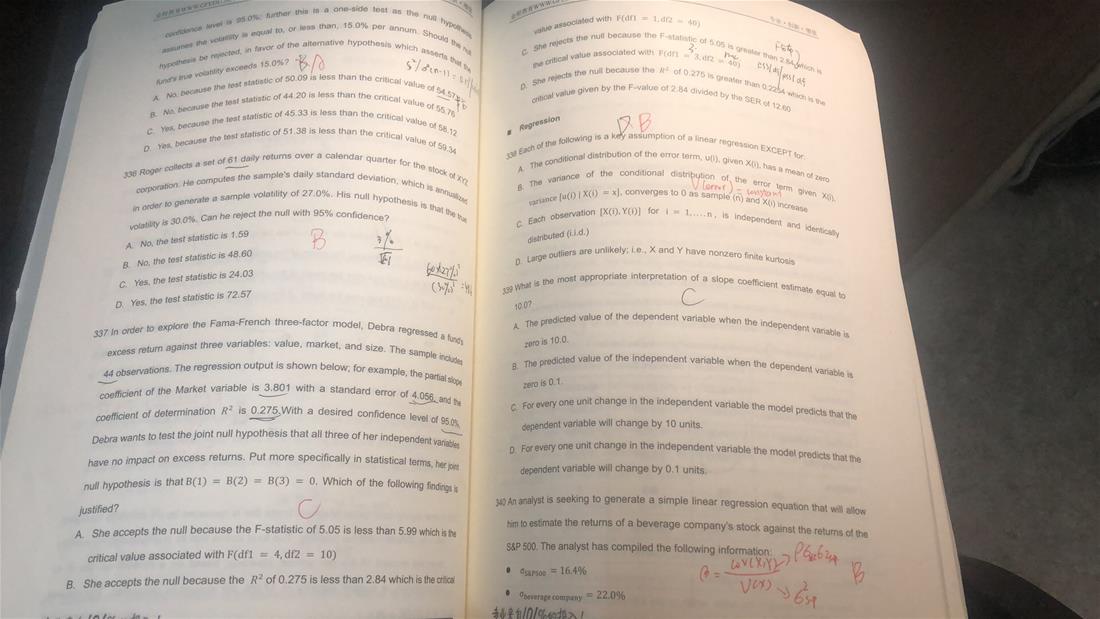 confidence level is 95.0%; further this is a one-side test as the null hypothesis
assumes the volatility is equal to, or less than, 15.0% per annum. Should the null
hypothesis be rejected, in favor of the alternative hypothesis which asserts that the
fund's true volatility exceeds 15.0%?
A. No, because the test statistic of 50.09 is less than the critical value of 54.57
B. No, because the test statistic of 44.20 is less than the critical value of 55.76
C. Yes, because the test statistic of 45.33 is less than the critical value of 58.12
D. Yes, because the test statistic of 51.38 is less than the critical value of 59.34
336 Roger collects a set of 61 daily returns over a calendar quarter for the stock of XYZ
corporation. He computes the sample's daily standard deviation, which is annualized
in order to generate a sample volatility of 27.0%. His null hypothesis is that the true
volatility is 30.0%. Can he reject the null with 95% confidence?
A. No, the test statistic is 1.59
B
B. No, the test statistic is 48.60
C. Yes, the test statistic is 24.03
D. Yes, the test statistic is 72.57
337 In order to explore the Fama-French three-factor model, Debra regressed a fund's
excess return against three variables: value, market, and size. The sample includes
44 observations. The regression output is shown below; for example, the partial slope
coefficient of the Market variable is 3.801 with a standard error of 4.056, and the
coefficient of determination R² is 0.275.With a desired confidence level of 95.0%,
Debra wants to test the joint null hypothesis that all three of her independent variables
have no impact on excess returns. Put more specifically in statistical terms, her joint
null hypothesis is that B(1) = B(2) = B(3) = 0. Which of the following findings is
justified?
C
A. She accepts the null because the F-statistic of 5.05 is less than 5.99 which is the
critical value associated with F(df1 = 4, df2 = 10)
B. She accepts the null because the R² of 0.275 is less than 2.84 which is the critical
value associated with F(df1 = 1, df2 = 40)
C. She rejects the null because the F-statistic of 5.05 is greater than 2.84 which is
the critical value associated with F(df1 = 3, df2 = 40)
D. She rejects the null because the R² of 0.275 is greater than 0.2254 which is the
critical value given by the F-value of 2.84 divided by the SER of 12.60
■ Regression
B
338 Each of the following is a key assumption of a linear regression EXCEPT for:
A. The conditional distribution of the error term, u(i), given X(i), has a mean of zero
B. The variance of the conditional distribution of the error term given X(i),
V(error) = constant
variance [u(i) | X(i) = x], converges to 0 as sample (n) and X(i) increase
C. Each observation [X(i), Y(i)] for i = 1,....n, is independent and identically
distributed (i.i.d.)
D. Large outliers are unlikely; i.e., X and Y have nonzero finite kurtosis
339 What is the most appropriate interpretation of a slope coefficient estimate equal to
10.0?
C
A. The predicted value of the dependent variable when the independent variable is
zero is 10.0.
B. The predicted value of the independent variable when the dependent variable is
zero is 0.1.
C. For every one unit change in the independent variable the model predicts that the
dependent variable will change by 10 units.
D. For every one unit change in the independent variable the model predicts that the
dependent variable will change by 0.1 units.
340 An analyst is seeking to generate a simple linear regression equation that will allow
him to estimate the returns of a beverage company's stock against the returns of the
S&P 500. The analyst has compiled the following information:
● σS&P500 = 16.4%
● σbeverage company = 22.0%
B